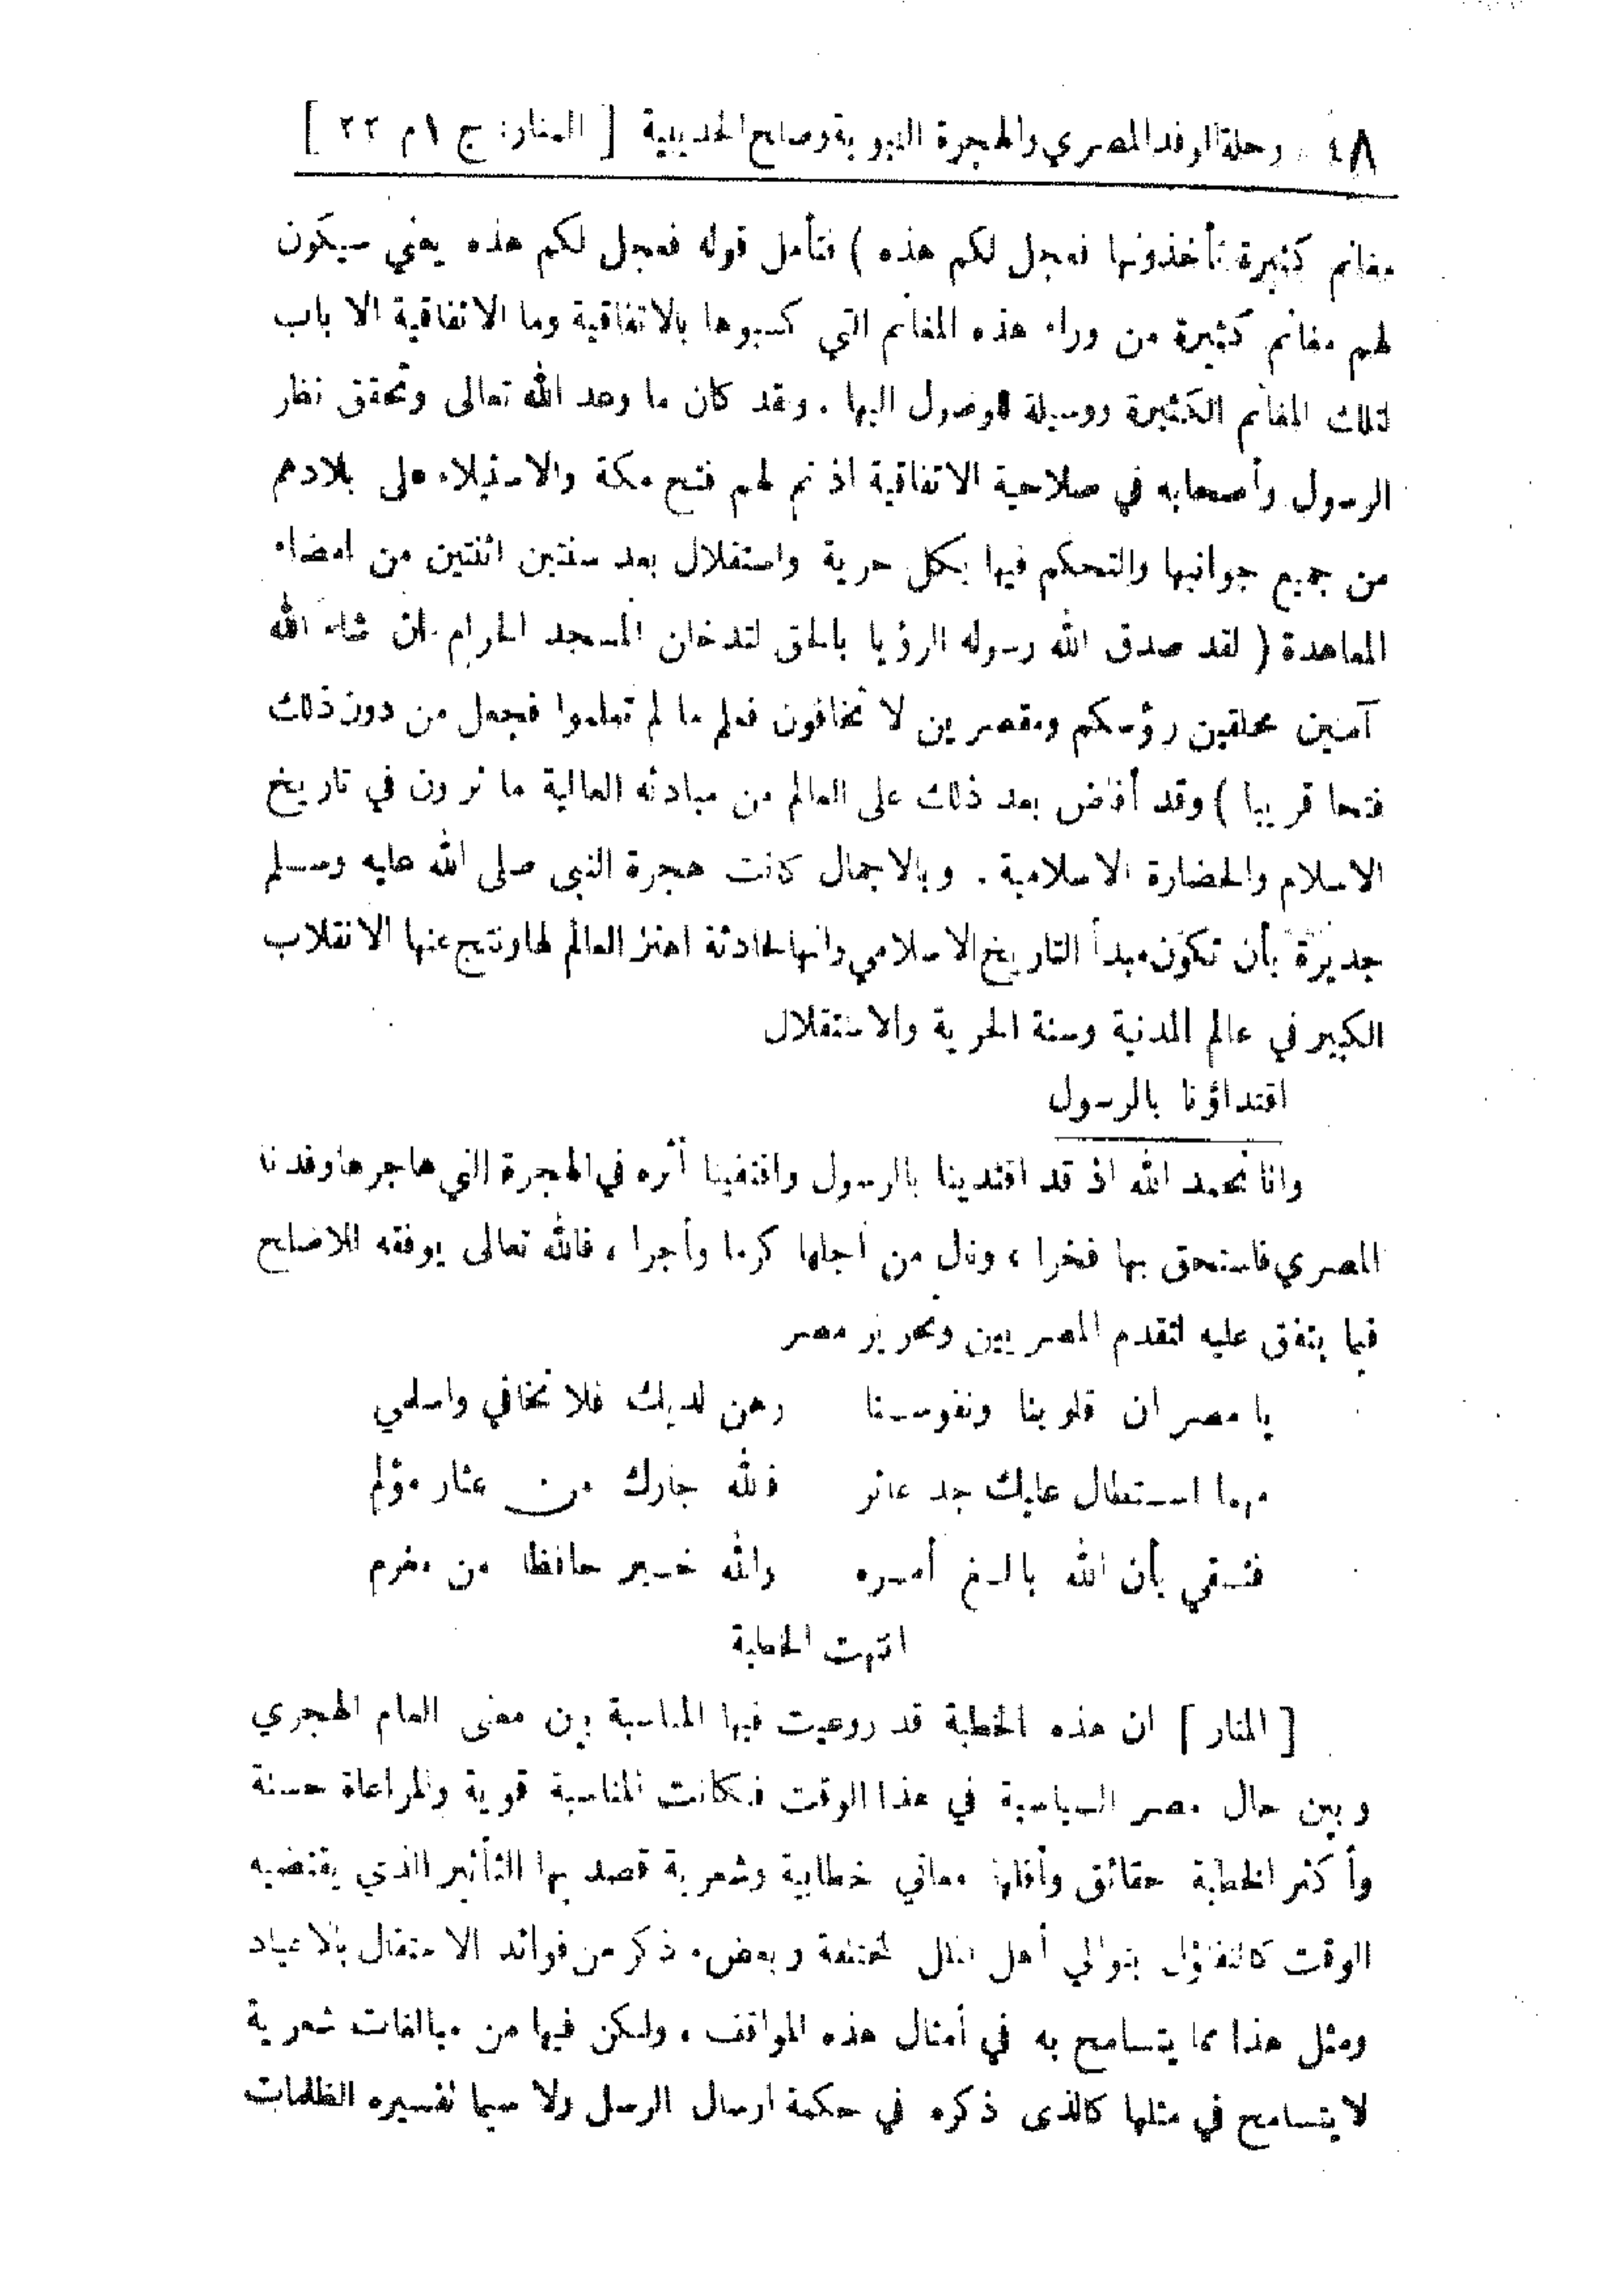 ٤٨ رحلة الوفد المصري والهجرة النبوية وصلح الحديبية [ المنار: ج ١ م ٢٢ ]
مغانم كثيرة تأخذونها فعجل لكم هذه ) فتأمل قوله فعجل لكم هذه يعني سيكون
لهم مغانم كثيرة من وراء هذه المغانم التي كسبوها بالاتفاقية وما الاتفاقية الا باب
لتلك المغانم الكثيرة ووسيلة للوصول اليها . وقد كان ما وعد الله تعالى وتحقق نظر
الرسول وأصحابه في صلاحية الاتفاقية اذ تم لهم فتح مكة والاستيلاء على بلادهم
من جميع جوانبها والتحكم فيها بكل حرية واستقلال بعد سنتين اثنتين من امضاء
المعاهدة ( لقد صدق الله رسوله الرؤيا بالحق لتدخلن المسجد الحرام ان شاء الله
آمنين محلقين رؤسكم ومقصرين لا تخافون فعلم ما لم تعلموا فجعل من دون ذلك
فتحا قريبا ) وقد أفاض بعد ذلك على العالم من مبادئه العالية ما ترون في تاريخ
الاسلام والحضارة الاسلامية . وبالاجمال كانت هجرة النبي صلى الله عليه وسلم
جديرة بأن تكون مبدأ التاريخ الاسلامي وانها لحادثة اهتز العالم لها ونتج عنها الانقلاب
الكبير في عالم المدنية وسنة الحرية والاستقلال
اقتداؤنا بالرسول
وانا نحمد الله اذ قد اقتدينا بالرسول واقتفينا أثره في الهجرة التي هاجرها وفدنا
المصري فاستحق بها فخرا ، ونال من أجلها كرما وأجرا ، فالله تعالى يوفقه للاصلح
فيما يتفق عليه لتقدم المصريين وتحرير مصر
يا مصر ان قلوبنا ونفوسنا رهن لديك فلا تخافي واسلمي
مهما استطال عليك جد عاثر فالله جارك من عثار مؤلم
فثقي بأن الله بالغ أمره والله خير حافظا من مغرم
انتهت الخطبة
[ المنار ] ان هذه الخطبة قد روعيت فيها المناسبة بين معنى العام الهجري
وبين حال مصر السياسية في هذا الوقت فكانت المناسبة قوية والمراعاة حسنة
وأكثر الخطبة حقائق وأقلها معاني خطابية وشعرية قصد بها التأثير الذي يقتضيه
الوقت كالتفاؤل بتوالي أهل الملل المختلفة وبعض ما ذكر من فوائد الاحتفال بالاعياد
ومثل هذا مما يتسامح به في أمثال هذه المواقف ، ولكن فيها من مبالغات شعرية
لا يتسامح في مثلها كالذى ذكره في حكمة ارسال الرسل ولا سيما تفسيره الظلمات